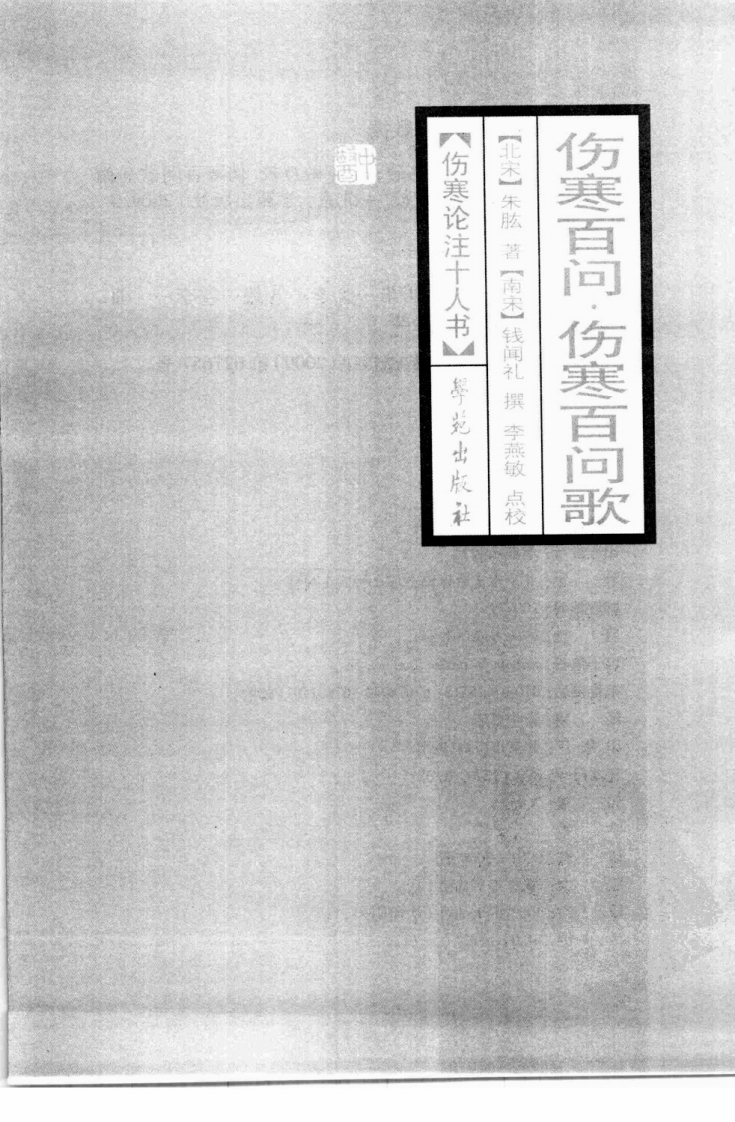 伤寒百问·伤寒百问歌
【北宋】朱肱 著【南宋】钱闻礼 撰 李燕敏 点校
【伤寒论注十人书】
學苑出版社
中醫